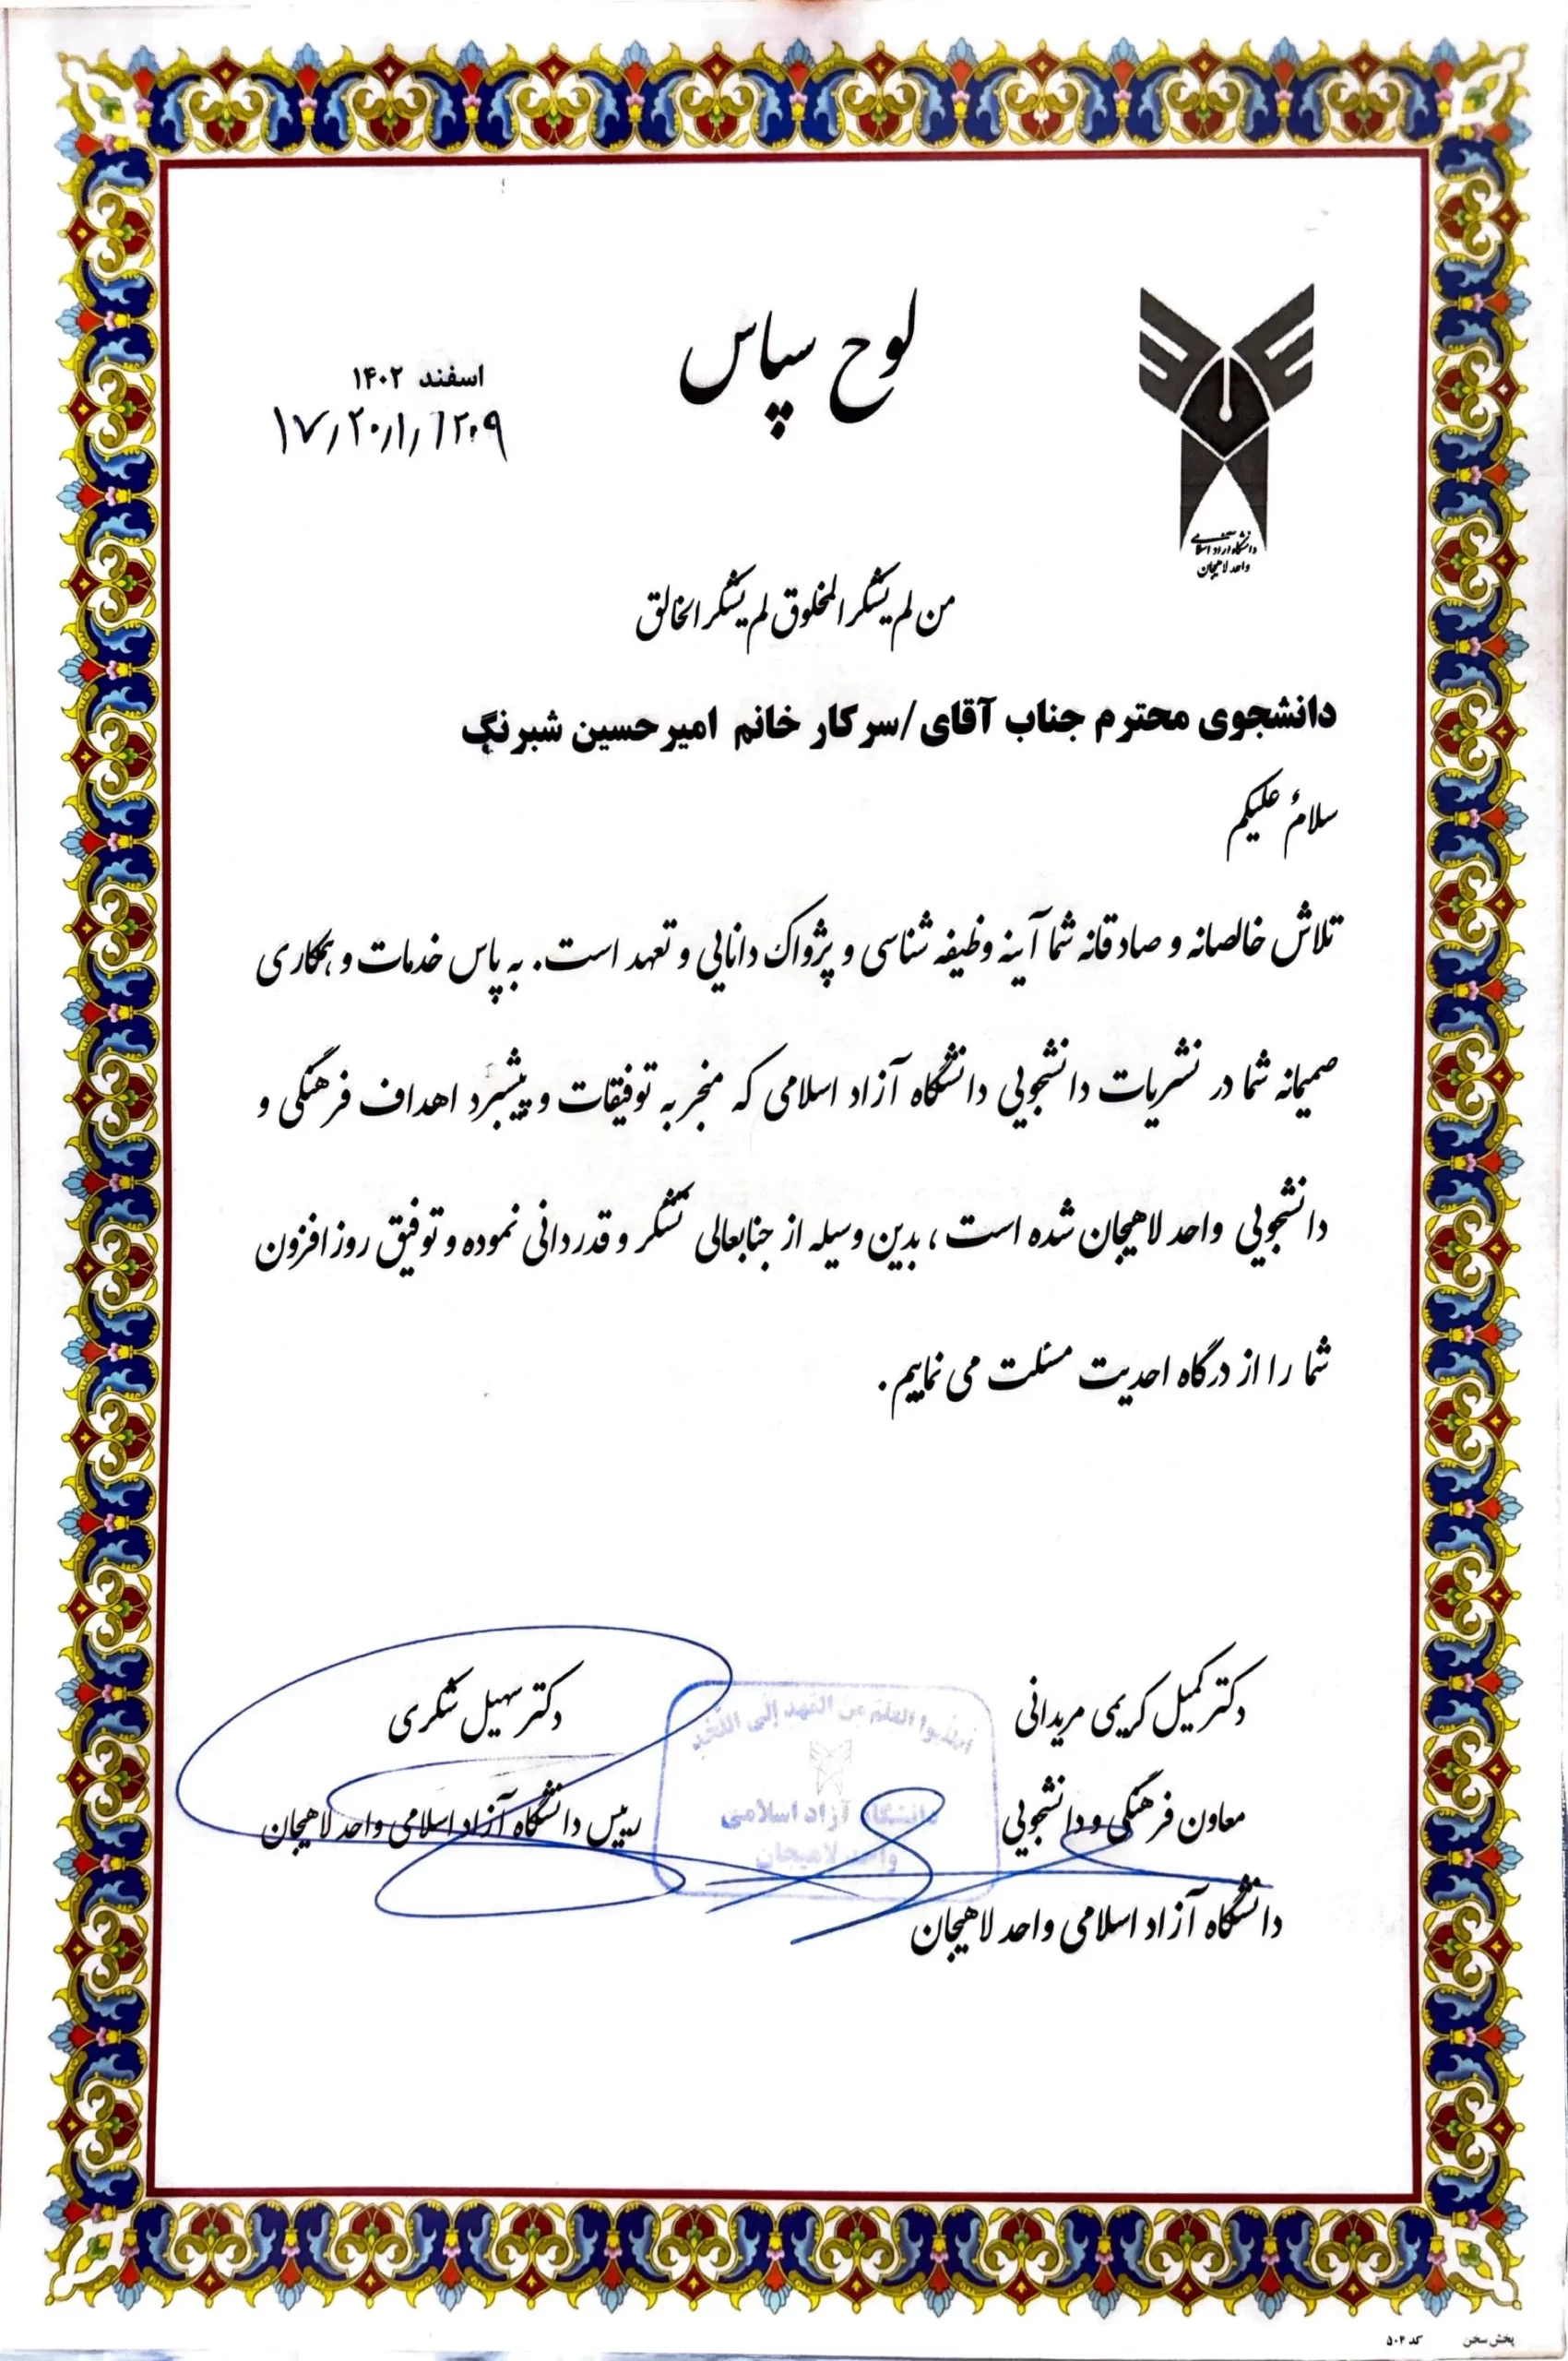 لوح سپاس
اسفند ۱۴۰۲
۱۷/۲۰/۱/۱۲۰۹
دانشگاه آزاد اسلامی
واحد لاهیجان
من لم یشکر المخلوق لم یشکر الخالق
دانشجوی محترم جناب آقای/سرکار خانم امیرحسین شبرنگ
سلامٌ علیکم
تلاش خالصانه و صادقانه شما آینه وظیفه شناسی و پژواک دانایی و تعهد است. به پاس خدمات و همکاری
صمیمانه شما در نشریات دانشجویی دانشگاه آزاد اسلامی که منجر به توفیقات و پیشبرد اهداف فرهنگی و
دانشجویی واحد لاهیجان شده است، بدین وسیله از جنابعالی تشکر و قدردانی نموده و توفیق روز افزون
شما را از درگاه احدیت مسئلت می نماییم.
دکتر کمیل کریمی مریدانی
معاون فرهنگی و دانشجویی
دانشگاه آزاد اسلامی واحد لاهیجان
دکتر سهیل شکری
رییس دانشگاه آزاد اسلامی واحد لاهیجان
اطلبوا العلم من المهد إلی اللحد
دانشگاه آزاد اسلامی
واحد لاهیجان
پخش سخن کد ۵۰۴